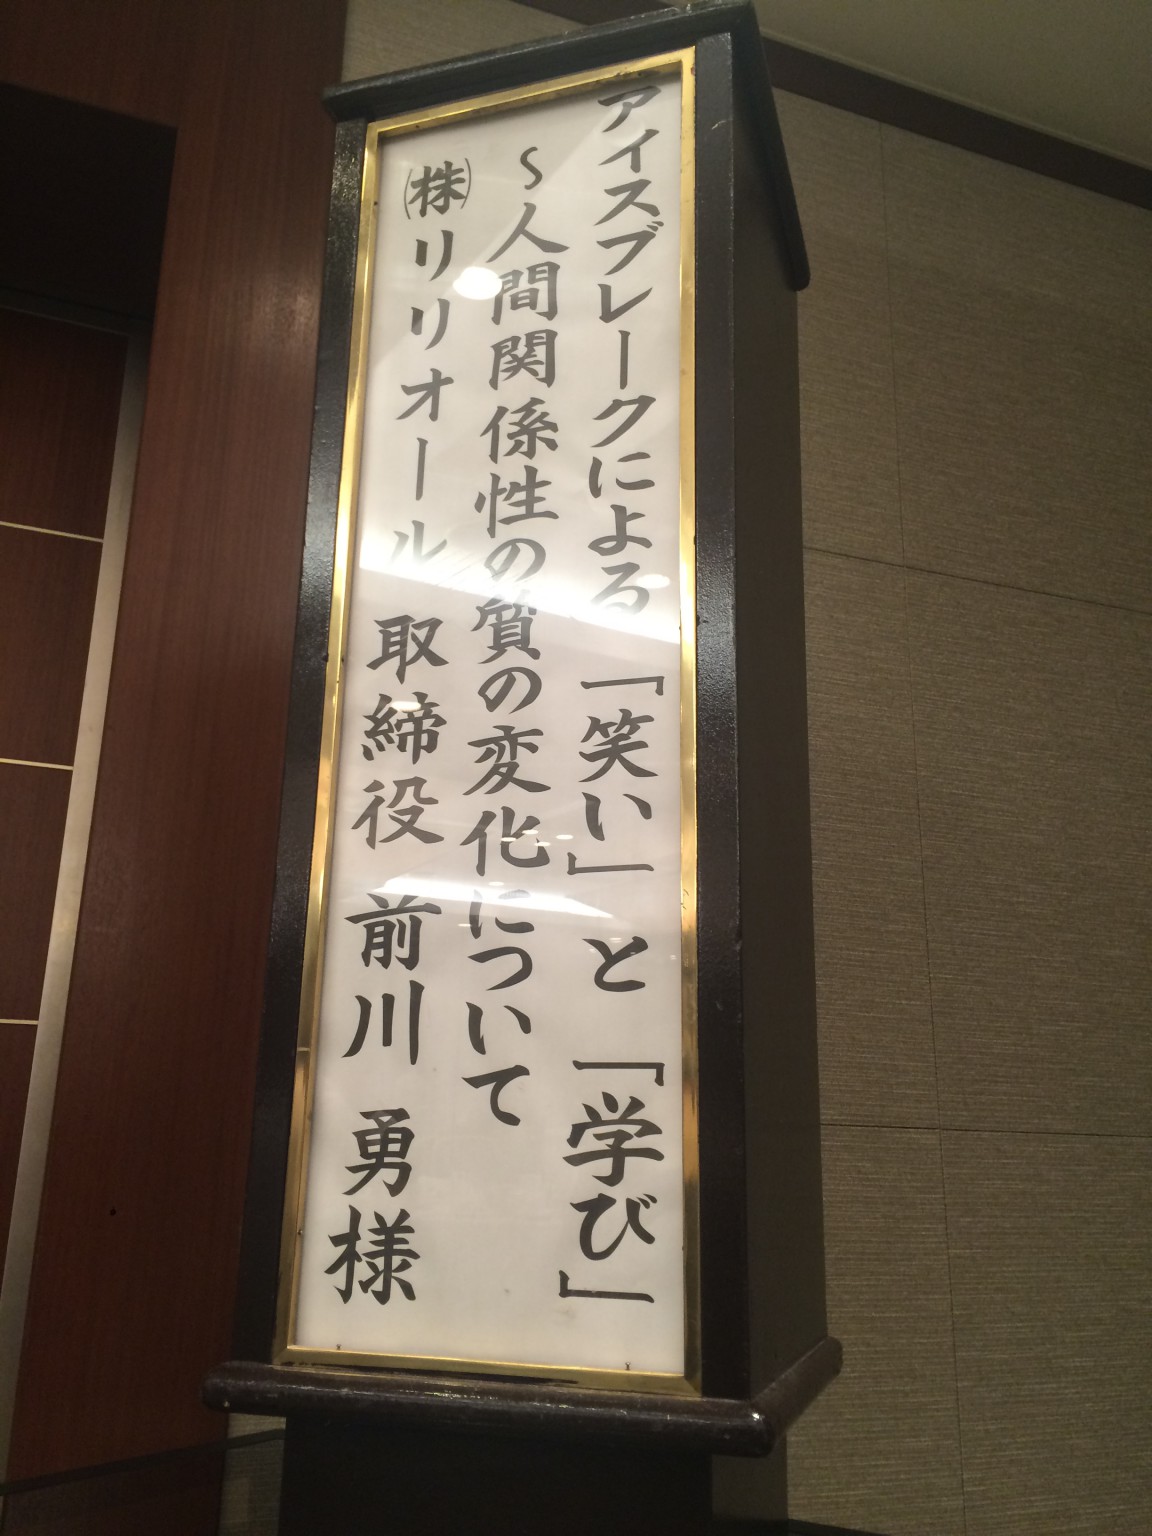 アイスブレークによる「笑い」と「学び」
～人間関係性の質の変化について
㈱リリオール 取締役 前川 勇様